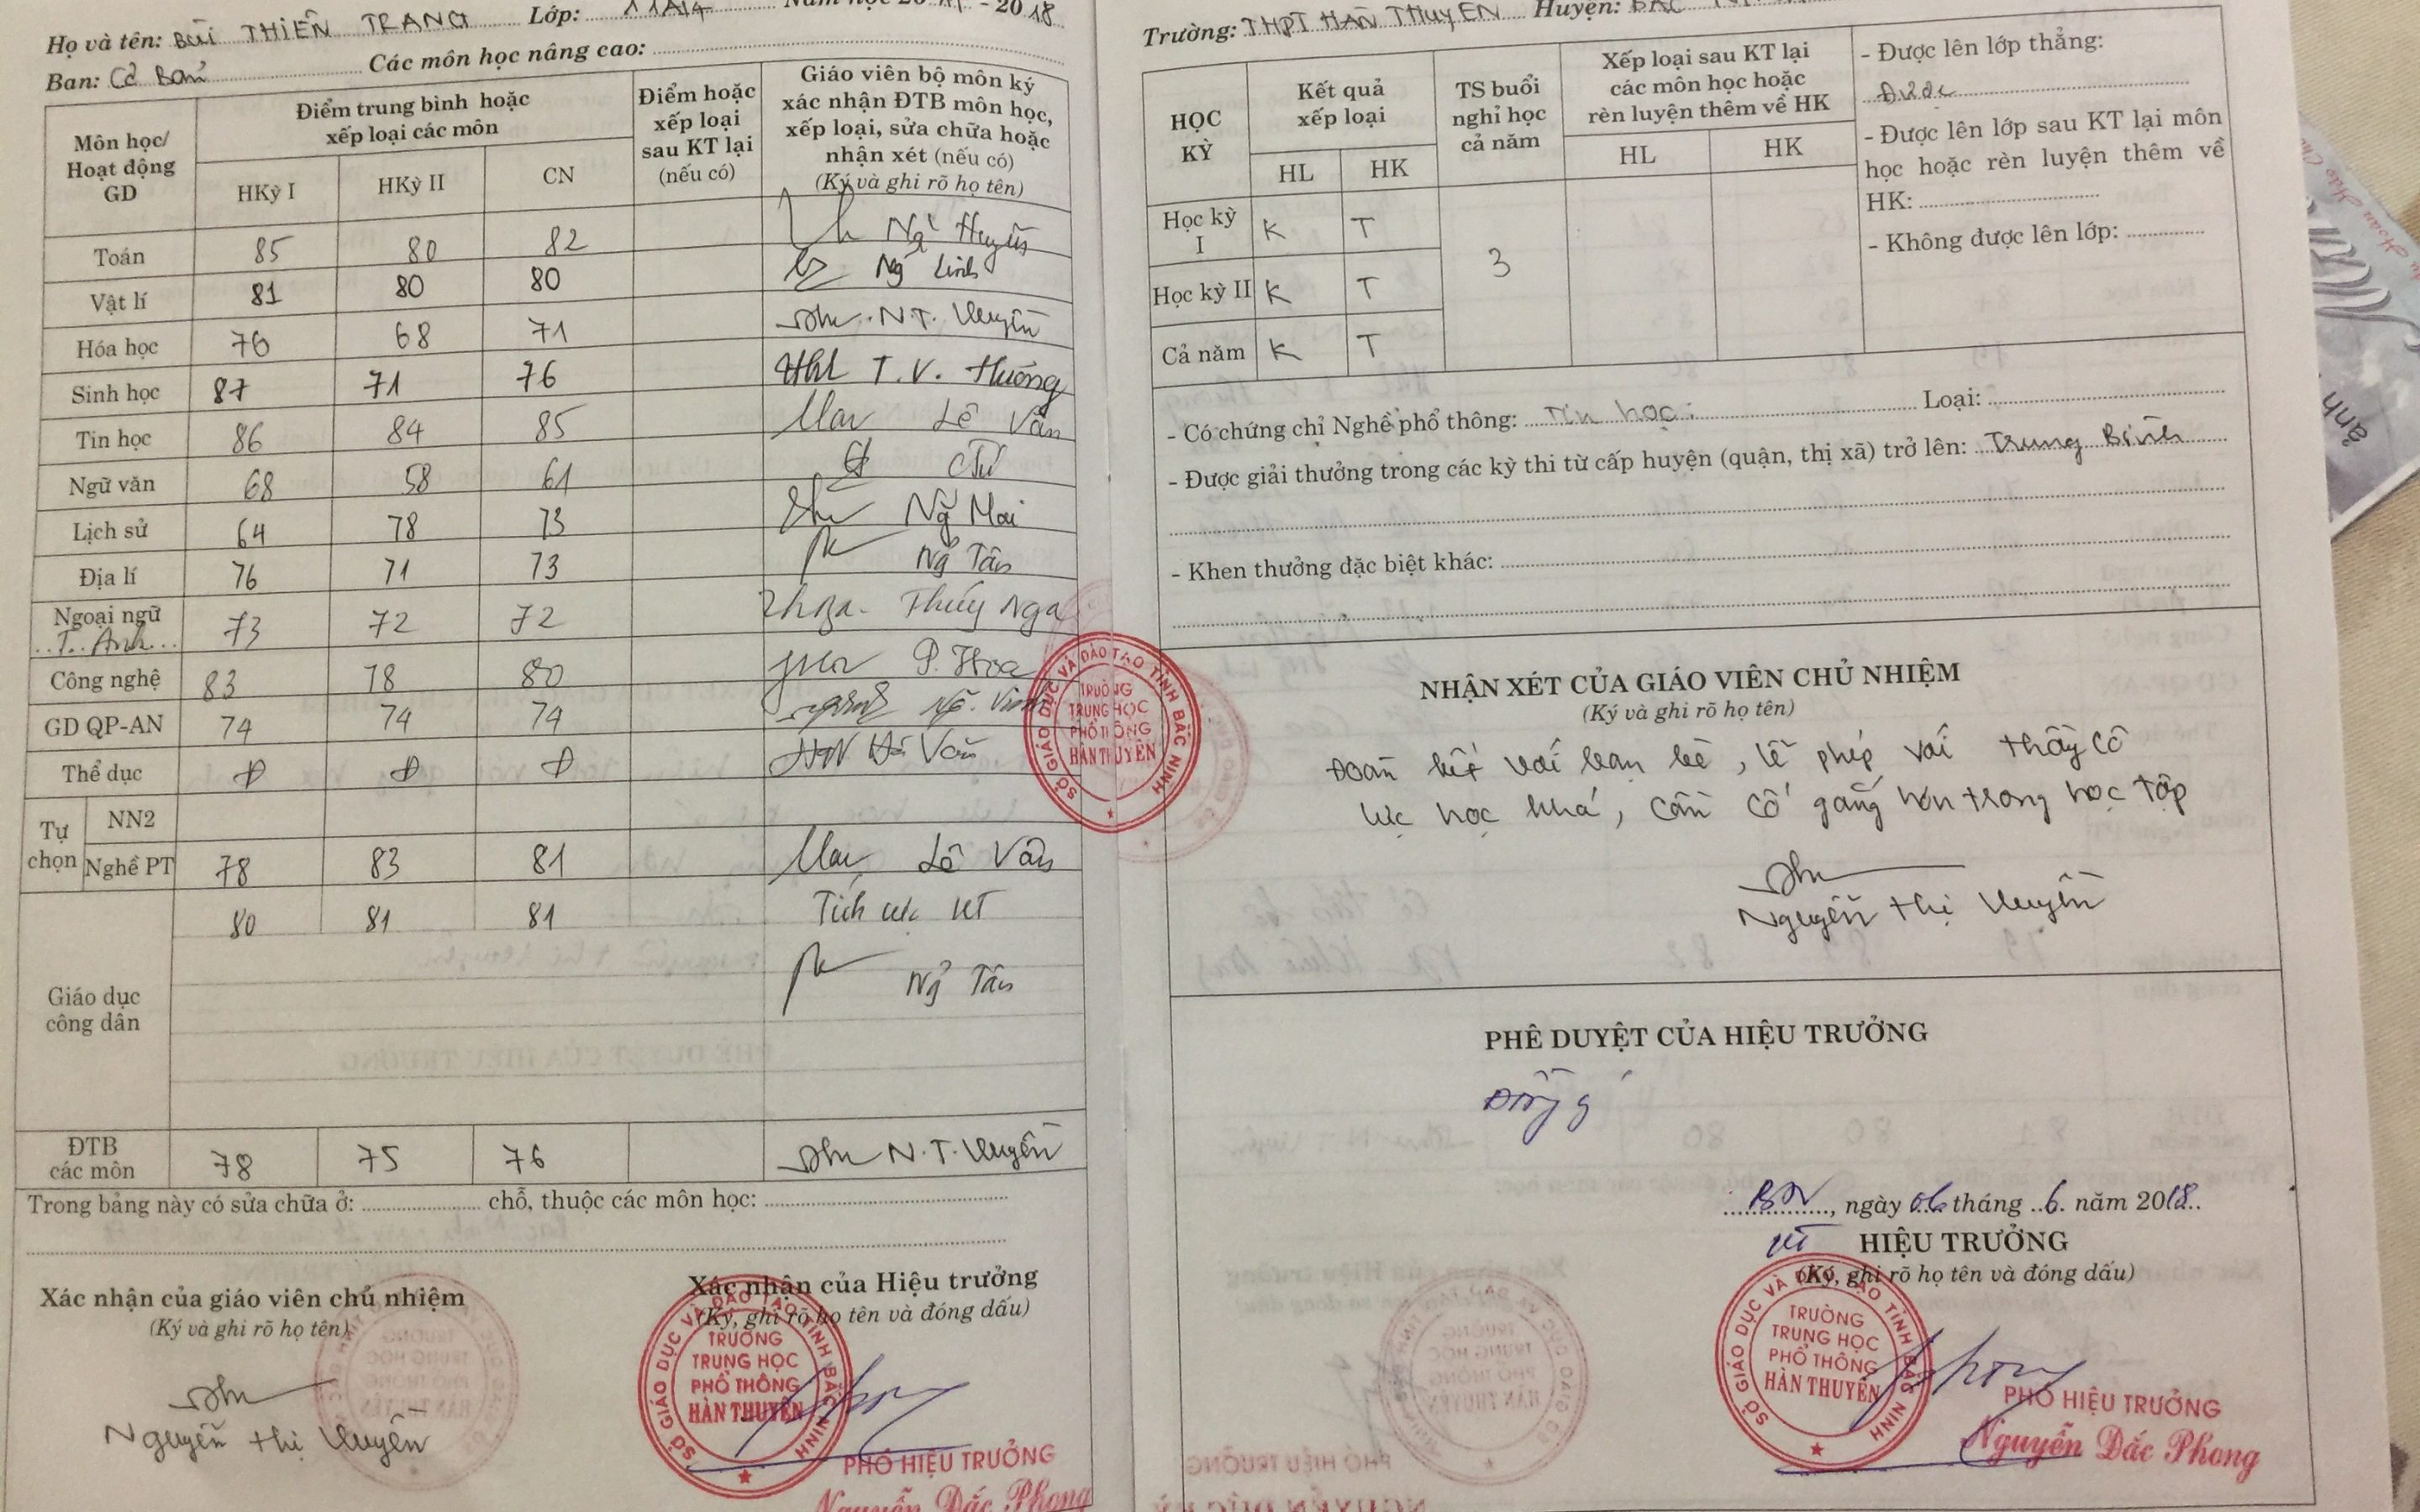 Họ và tên: BÙI THIÊN TRANG Lớp: 11A14 Năm học 20 - 2018
Ban: Cơ Bản Các môn học nâng cao:
Môn học/ Hoạt động GD
Điểm trung bình hoặc xếp loại các môn
HKỳ I HKỳ II CN
Điểm hoặc xếp loại sau KT lại (nếu có)
Giáo viên bộ môn ký xác nhận ĐTB môn học, xếp loại, sửa chữa hoặc nhận xét (nếu có)
(Ký và ghi rõ họ tên)
Toán 85 80 82
Vật lí 81 80 80 Ng Linh
Hóa học 76 68 71 N.T. Huyền
Sinh học 87 71 76 T.V. Hưởng
Tin học 86 84 85 Lê Vân
Ngữ văn 68 58 61
Lịch sử 64 78 73 Ng Mai
Địa lí 76 71 73 Ng Tân
Ngoại ngữ T. Anh 73 72 72 Thúy Nga
Công nghệ 83 78 80 P. Hoa
GD QP-AN 74 74 74
Thể dục Đ Đ Đ
Tự chọn
NN2
Nghề PT 78 83 81 Lê Vân
Giáo dục công dân 80 81 81 Tích cực HT
Ng Tân
ĐTB các môn 78 75 76 N.T. Huyền
Trong bảng này có sửa chữa ở: chỗ, thuộc các môn học:
Xác nhận của giáo viên chủ nhiệm
(Ký và ghi rõ họ tên)
Nguyễn Thị Huyền
Xác nhận của Hiệu trưởng
(Ký, ghi rõ họ tên và đóng dấu)
SỞ GIÁO DỤC VÀ ĐÀO TẠO TỈNH BẮC NINH
TRƯỜNG
TRUNG HỌC
PHỔ THÔNG
HÀN THUYÊN
PHÓ HIỆU TRƯỞNG
Nguyễn Đắc Phong
SỞ GIÁO DỤC VÀ ĐÀO TẠO TỈNH BẮC NINH
TRƯỜNG
TRUNG HỌC
PHỔ THÔNG
HÀN THUYÊN
Trường: THPT HÀN THUYÊN Huyện: BẮC
HỌC KỲ
Kết quả xếp loại
HL HK
TS buổi nghỉ học cả năm
Xếp loại sau KT lại các môn học hoặc rèn luyện thêm về HK
HL HK
Học kỳ I K T
Học kỳ II K T
Cả năm K T
3
- Được lên lớp thẳng:
Được
- Được lên lớp sau KT lại môn
học hoặc rèn luyện thêm về
HK:
- Không được lên lớp:
- Có chứng chỉ Nghề phổ thông: Tin học. Loại:
- Được giải thưởng trong các kỳ thi từ cấp huyện (quận, thị xã) trở lên: Trung Bình
- Khen thưởng đặc biệt khác:
NHẬN XÉT CỦA GIÁO VIÊN CHỦ NHIỆM
(Ký và ghi rõ họ tên)
Đoàn kết với bạn bè, lễ phép với thầy cô
lực học khá, cần cố gắng hơn trong học tập
Nguyễn Thị Huyền
PHÊ DUYỆT CỦA HIỆU TRƯỞNG
Đồng ý
BN, ngày 06 tháng 6 năm 2018
KT HIỆU TRƯỞNG
(Ký, ghi rõ họ tên và đóng dấu)
SỞ GIÁO DỤC VÀ ĐÀO TẠO TỈNH BẮC NINH
TRƯỜNG
TRUNG HỌC
PHỔ THÔNG
HÀN THUYÊN
PHÓ HIỆU TRƯỞNG
Nguyễn Đắc Phong